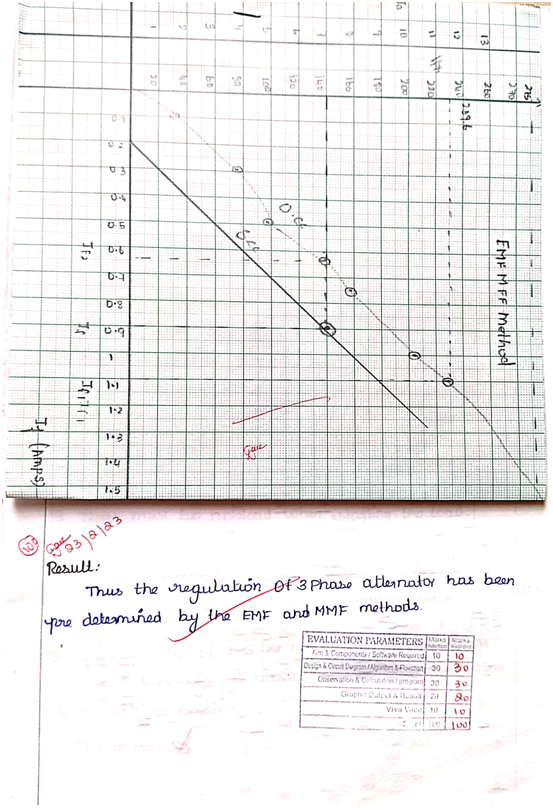 EMF MFF Method
1 2 3 4 5 6 7 8 9 10 11 12 13
20 40 60 80 100 120 140 160 180 200 220 240 260 270 275
239.6
O.C
SCC
0.1
0.2
0.3
0.4
0.5
0.6
0.7
0.8
0.9
1
1.1
1.2
1.3
1.4
1.5
If2
If
If1
If (Amps)
100
23/2/23
Result:
Thus the regulation of 3 Phase alternator has been
pre determined by the EMF and MMF methods.
EVALUATION PARAMETERS Marks Marks Awarded
Aim & Components / Software Required 10 10
Design & Circuit Diagram / Algorithm & Flowchart 30 30
Observation & Calculation / program 30 30
Graph / Output & Result 20 20
Viva Voce 10 10
100 100